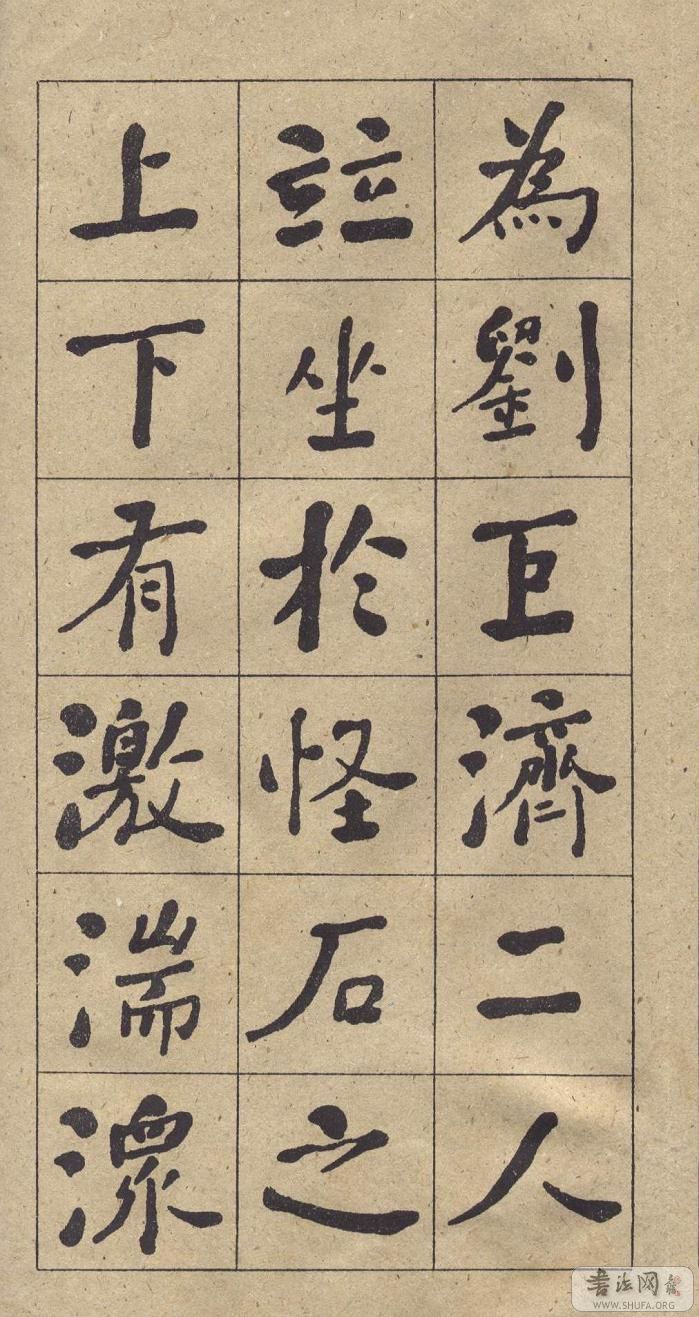 為劉巨濟二人
竝坐於怪石之
上下有激湍潨
書法网
WWW.SHUFA.ORG